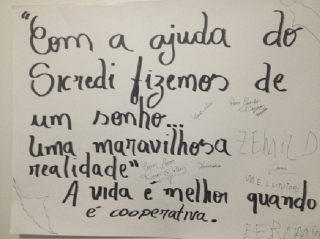 "Com a ajuda do
Sicredi fizemos de
um sonho...
Uma maravilhosa
realidade"
A vida é melhor quando
é cooperativa.